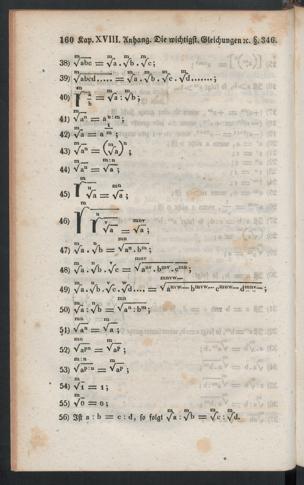 160 Kap. XVIII. Anhang. Die wichtigst. Gleichungen ꝛc. §. 346.
38) ᵐ√abc = ᵐ√a . ᵐ√b . ᵐ√c;
39) ᵐ√abcd..... = ᵐ√a . ᵐ√b . ᵐ√c . ᵐ√d.......;
40) ᵐ√(a/b) = ᵐ√a : ᵐ√b;
41) ᵐ√aⁿ = a^(n:m);
42) ᵐ√a = a^(1/m);
43) ᵐ√aⁿ = (ᵐ√a)ⁿ;
44) ᵐ√aⁿ = ᵐ:ⁿ√a;
45) ᵐ√(ⁿ√a) = ᵐⁿ√a;
46) ᵐ√(ⁿ√(ᵛ√a)) = ᵐⁿᵛ√a;
47) ᵐ√a . ⁿ√b = ᵐⁿ√(aⁿ . bᵐ);
48) ᵐ√a . ⁿ√b . ᵛ√c = ᵐⁿᵛ√(aⁿᵛ . bᵐᵛ . cᵐⁿ);
49) ᵐ√a . ⁿ√b . ᵛ√c . ʷ√d.... =
50) ᵐ√a : ⁿ√b = ᵐⁿ√(aⁿ : bᵐ);
51) ᵐⁿ√aⁿ = ᵐ√a;
52) ᵐⁿ√aᵖⁿ = ᵐ√aᵖ;
53) ᵐ:ⁿ√aᵖ:ⁿ = ᵐ√aᵖ;
54) ᵐ√1 = 1;
55) ᵐ√0 = 0;
56) Ist a : b = c : d, so folgt ᵐ√a : ᵐ√b = ᵐ√c : ᵐ√d.